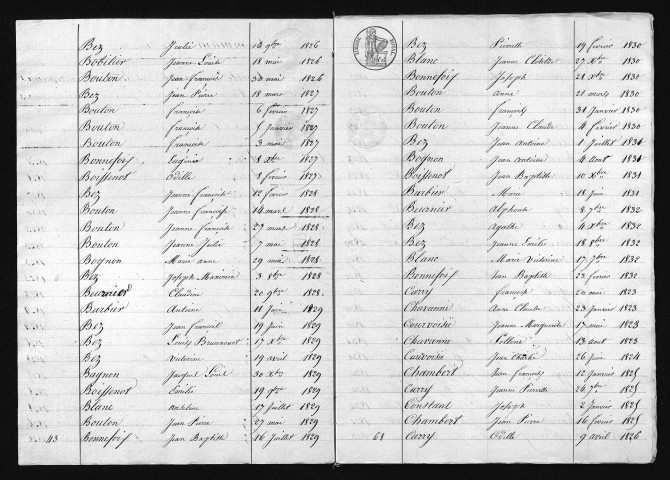 Bez Julie 10 9bre 1826
Bobilier Jeanne Louise 18 mai 1826
Bouton Jean François 30 mai 1826
Bez Jean Pierre 18 mars 1827
Bouton François 6 février 1827
Bouton François 5 janvier 1827
Bouton François 3 mai 1827
Bonnefois Eugénie 8 Xbre 1827
Boissenot Odille 8 février 1827
Bez Jeanne Françoise 12 février 1828
Bouton Jeanne Françoise 14 mars 1828
Bouton Jeanne Françoise 27 mars 1828
Bouton Jeanne Julie 7 mai 1828
Bognon Marie anne 29 mai 1828
Bez Joseph Maximin 3 8bre 1828
Beurnier Claudine 20 9bre 1828
Barbier Antoine 11 juin 1829
Bez Jean François 19 juin 1829
Bez Louis 17 Xbre 1829
Bez Victorine 19 avril 1829
Bagnon Jacques Louis 30 Xbre 1829
Boissenot Emilie 19 9bre 1829
Blanc 17 juillet 1829
Bouton Jean Pierre 27 mai 1829
43 Bonnefois Jean Baptiste 16 juillet 1829
Bez Pierrette 19 février 1830
Blanc Jeanne Clotilde 27 Xbre 1830
Bonnefois Joseph 21 Xbre 1830
Bouton Anne 21 mars 1830
Bouton François 31 janvier 1830
Bouton Jeanne Claude 4 février 1830
Bez Jean Antoine 1 juillet 1831
Bognon Jean Antoine 4 aout 1831
Boissenot Jean Baptiste 10 Xbre 1831
Barbier Marie 18 juin 1831
Beurnier Alphonse 8 7bre 1832
Bez Agathe 4 Xbre 1832
Bez Jeanne Emélie 18 8bre 1832
Blanc Marie Victorine 17 7bre 1832
Bonnefois Jean Baptiste 23 février 1832
Carry François 20 mai 1823
Chavanne Anne Claude 23 janvier 1823
Courvoisié Jeanne Marguerite 17 mai 1823
Chavanne 13 aout 1823
Jean Charle 26 juin 1824
Chambert Jean François 12 janvier 1825
Carry Jeanne Pierrette 26 7bre 1825
Constant Joseph 2 janvier 1825
Chambert Jean Pierre 16 février 1825
68 Carry Odille 9 avril 1826